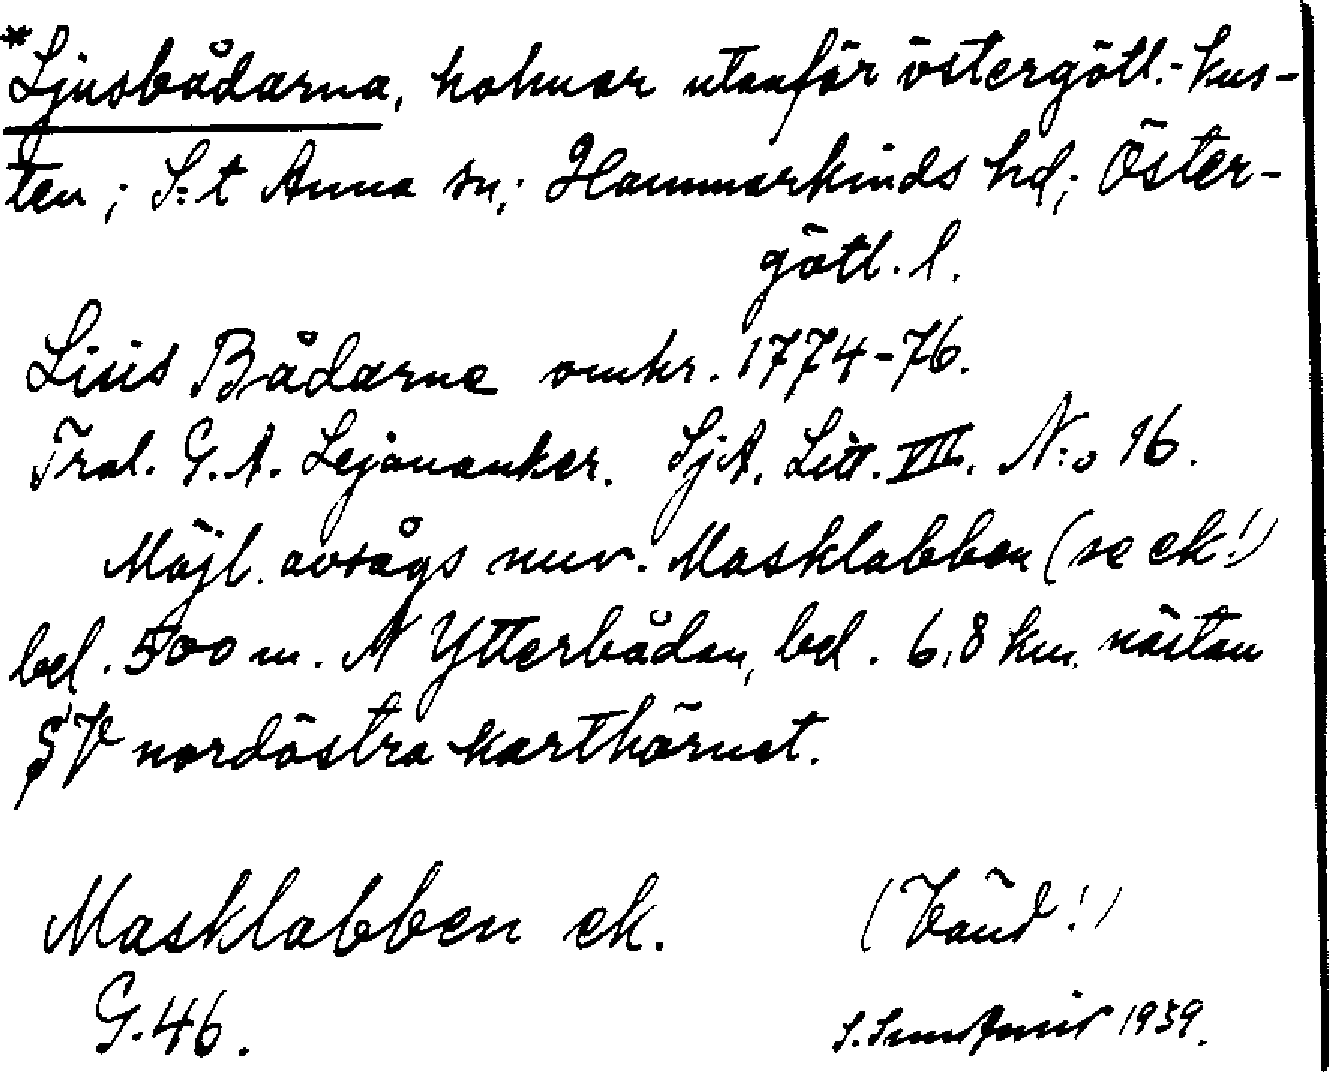 *Ljusbådarna, holmar utanför östergötl.-kus-
ten; S:t Anna sn; Hammarkinds hd; Öster-
götl. l.
Liuis Bådarne omkr. 1774-76.
Tral. G. A. Lejonanker. SjA. Litt. VII. N:o 16.
Möjl. avsågs nuv. Masklabben (se ek!)
bel. 500 m. N Ytterbådan, bel. 6,8 km. nästan
SV nordöstra karthörnet.
Masklabben ek. (Vänd!)
G. 46.
S. 1939.